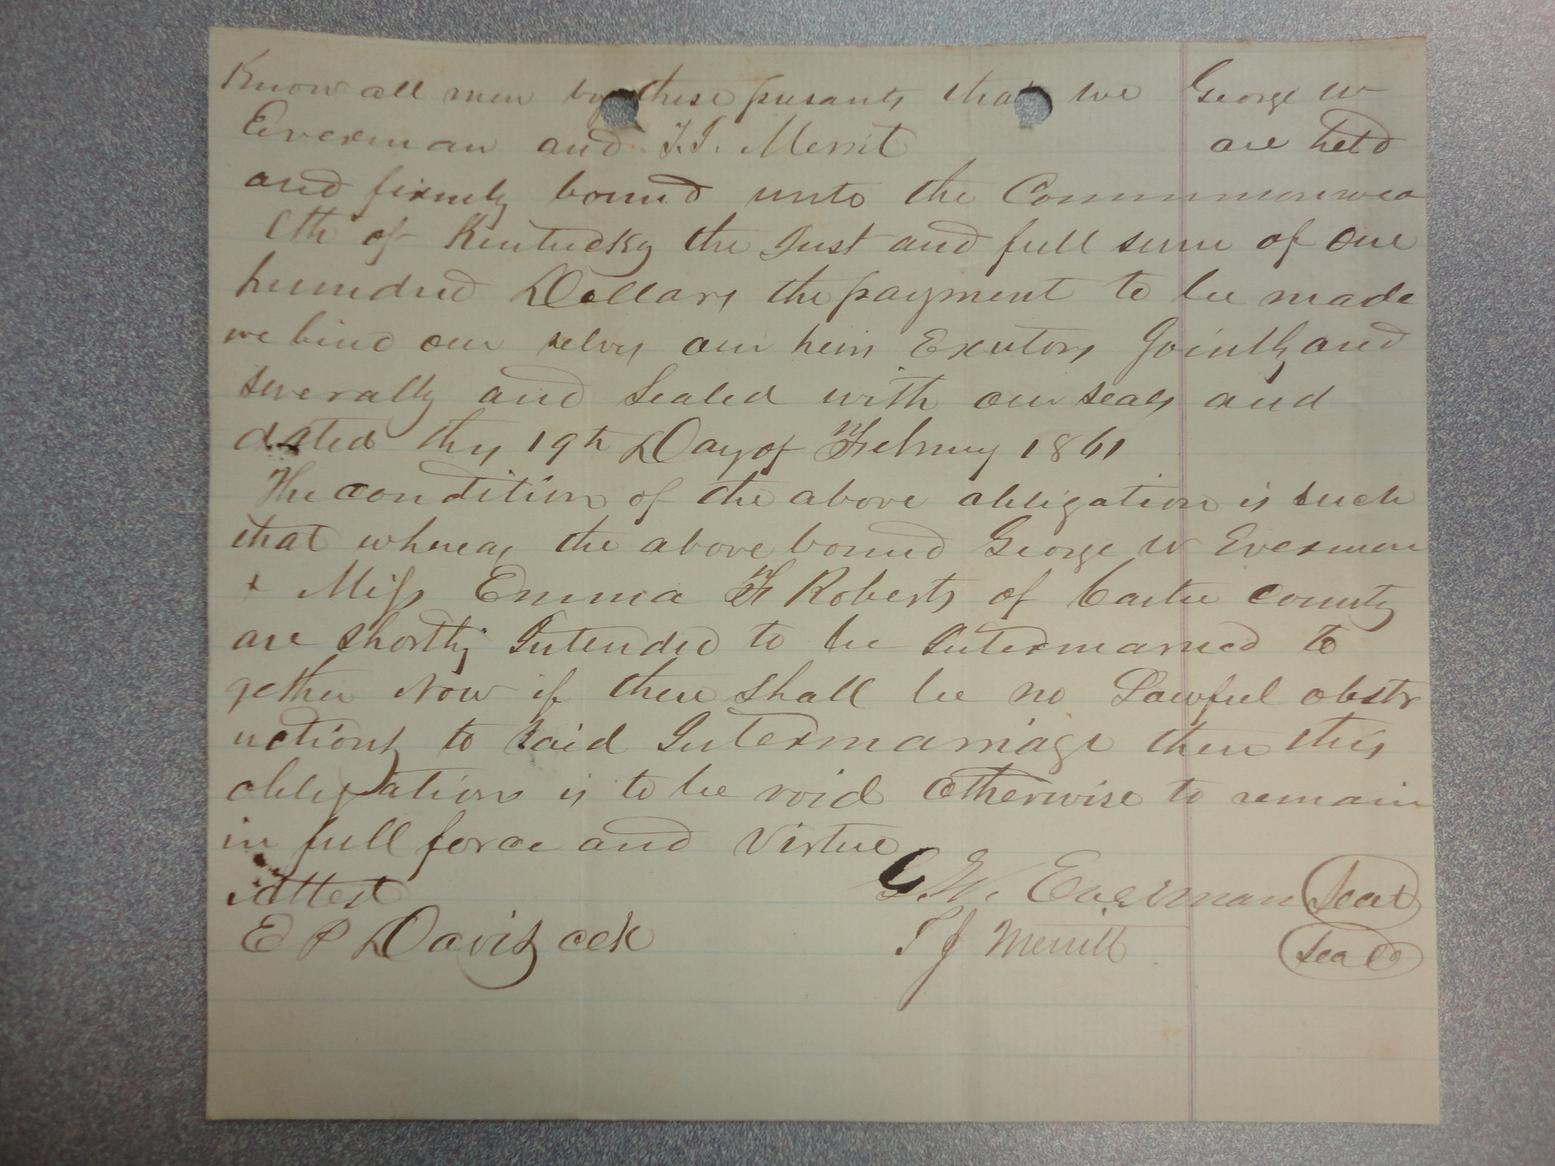 Know all men by these presants that we George W
Everman and T.J. Merrit are held
and firmly bound unto the Commonwea
lth of Kentucky the Just and full sum of one
hundred Dollars the payment to be made
we bind our selvs our heirs Exutors Jointly and
severally and Sealed with our seals and
dated this 19th Day of February 1861
The condition of the above obligation is such
that whereas the above bound George W Everman
& Miss Emma F Roberts of Carter County
are shortly Intended to be Intermarried to
gether Now if there Shall be no Lawful obstr
uctions to said Intermarriage then this
obligation is to be void otherwise to remain
in full force and Virtue
Attest G.W. Everman Seal
E P Davis T J Merrill Seal